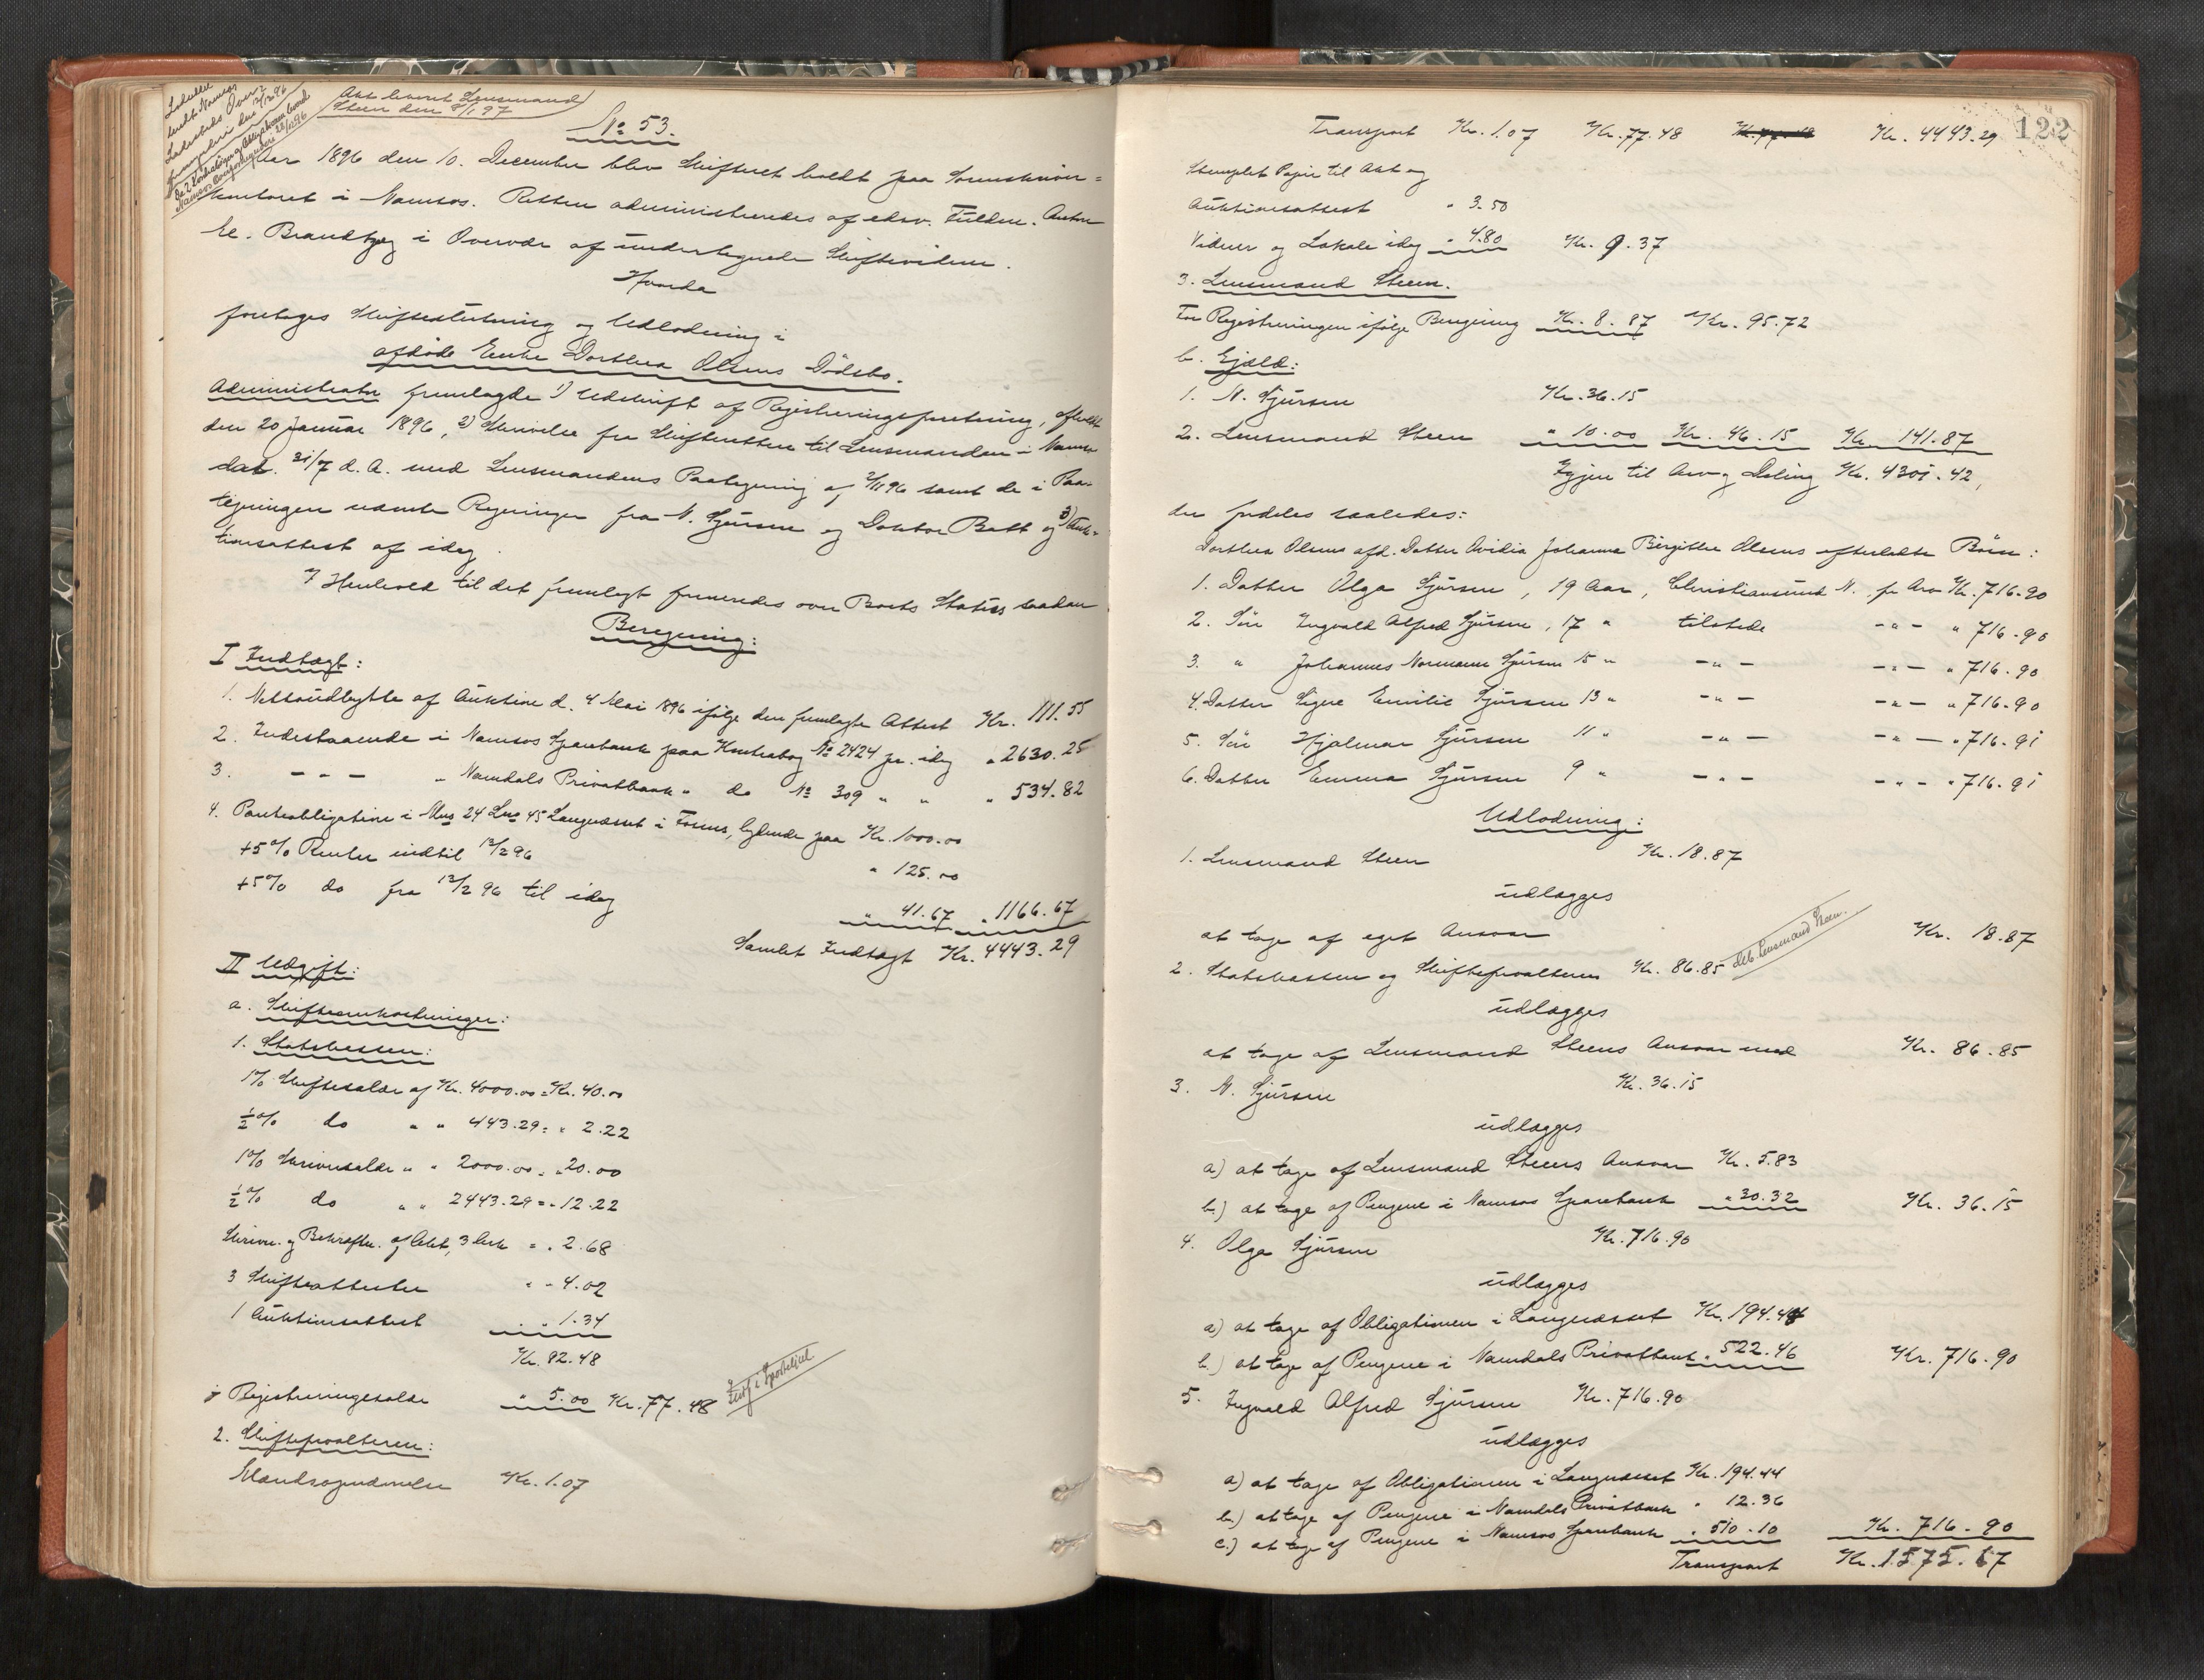 Akt leveret Lensmand
Steen den 8/1 97
No 53.
Aar 1896 den 10. December blev Skifteret holdt paa Sorenskriver-
kontoret i Namsos. Retten administreredes af edsv. Fuldm. Anton
E. Brandtzæg i Overvær af undertegnede Skiftevidner.
Hvorda
foretoges Skifteslutning og Udlodning i
afdøde Enke Dorthea Olsens Dødsbo.
Administrator fremlagde 1) Udskrift af Registreringsforretning, afholdt
den 20 Januar 1896, 2) Skrivelse fra Skifteretten til Lensmanden i Namsen
dat. 31/7 d. A. med Lensmandens Paategning af 2/11 96 samt de i Paa-
tegningen nævnte Regninger fra N. Sjursen og Doktor Batt og 3) Auk-
tionsattest af idag.
I Henhold til det fremlagt fremredes over Boets Status saadan
Beregning:
I Indtægt:
1. Nettoudbytte af Auktion d. 4 Mai 1896 ifølge den fremlagte Attest Kr. 111.55
2. Indestaaende i Namsos Sparebank paa Kontrabog No 2424 pr. idag " 2630.25
3. - " - " Namdals Privatbank " do No 309 " " " 534.82
4. Panteobligation i Mno 24 Lno 45 Langnæsset i Fosnes, lydende paa Kr. 1000.00
+5% Renter indtil 12/2 96 " 125.00
+5% do fra 12/2 96 til idag " 41.67 " 1166.67
Samlet Indtægt Kr. 4443.29
II Udgift:
a. Skifteomkostninger:
1. Statskassen:
1% Skiftesalær af Kr. 4000.00 = Kr. 40.00
½% do " " 443.29 = " 2.22
1% Skriversalær " " 2000.00 = " 20.00
½% do " " 2443.29 = " 12.22
Skrivn. og Bekræftn. af Akt, 3 Ark = " 2.68
3 Skifteattester " " 4.02
1 Auktionsattest " " 1.34
Kr. 82.48
÷ Registreringssalær " 5.00 Kr. 77.48
Indf. i Sporteljnl.
2. Skifteforvalteren:
Mandsopnævnelse Kr. 1.07
122
Transport Kr. 1.07 Kr. 77.48 Kr. 4443.29
Stemplet Papir til Akt og
Auktionsattest " 3.50
Vidner og Lokale idag " 4.80 Kr. 9.37
3. Lensmand Steen.
For Registreringen ifølge Beregning Kr. 8.87 Kr. 95.72
b. Gjæld:
1. N. Sjursen Kr. 36.15
2. Lensmand Steen " 10.00 Kr. 46.15 Kr. 141.87
Igjen til Arv og Deling Kr. 4301.42,
der fordeles saaledes:
Dorthea Olsens afd. Datter Ovidia Johanna Birgitte Olsens efterladte Børn:
1. Datter Olga Sjursen, 19 Aar, Christiansund N. fr. Arv Kr. 716.90
2. Søn Ingvald Alfred Sjursen, 17 " tilstede - " - " 716.90
3. " Johannes Normann Sjursen 15 " - " - - " - " 716.90
4. Datter Signe Emilie Sjursen 13 " - " - - " - " 716.90
5. Søn Hjalmar Sjursen 11 " - " - - " - " 716.91
6. Datter Emma Sjursen 9 " - " - - " - " 716.91
Udlodning:
1. Lensmand Steen Kr. 18.87
udlægges
at tage af eget Ansvar Kr. 18.87
2. Statskassen og Skifteforvalteren Kr. 86.85
deb. Lensmand Steen.
udlægges
at tage af Lensmand Steens Ansvar med Kr. 86.85
3. N. Sjursen Kr. 36.15
udlægges
a) at tage af Lensmand Steens Ansvar Kr. 5.83
b.) at tage af Pengene i Namsos Sparebank " 30.32 Kr. 36.15
4. Olga Sjursen Kr. 716.90
udlægges
a) at tage af Obligationen i Langnæsset Kr. 194.44
b.) at tage af Pengene i Namdals Privatbank " 522.46 Kr. 716.90
5. Ingvald Alfred Sjursen Kr. 716.90
udlægges
a) at tage af Obligationen i Langnæsset Kr. 194.44
b.) at tage af Pengene i Namdals Privatbank " 12.36
c.) at tage af Pengene i Namsos Sparebank " 510.10 Kr. 716.90
Transport Kr. 1575.67